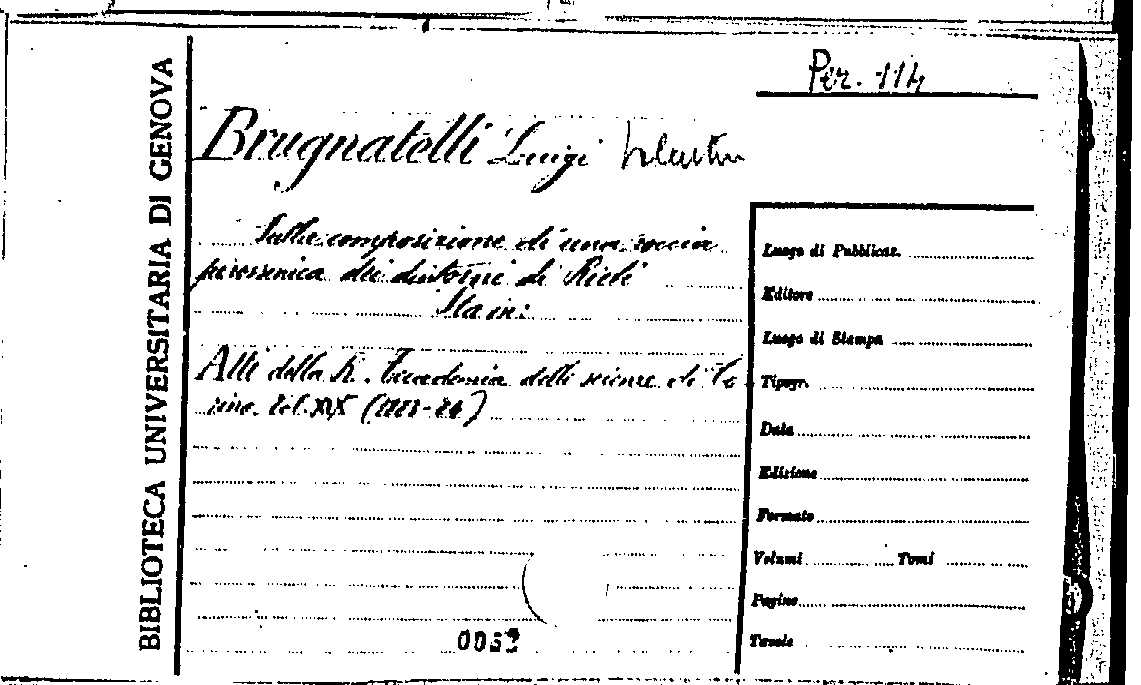 BIBLIOTECA UNIVERSITARIA DI GENOVA
Per. 114
Brugnatelli Luigi
Sulla composizione di una roccia
pirossenica dei dintorni di Rieti
Sta in:
Atti della R. Accademia delle scienze di To
rino. Vol. XIX (1883-84)
Luogo di Pubblicaz.
Editore
Luogo di Stampa
Tipogr.
Data
Edizione
Formato
Volumi Tomi
Pagine
Tavole